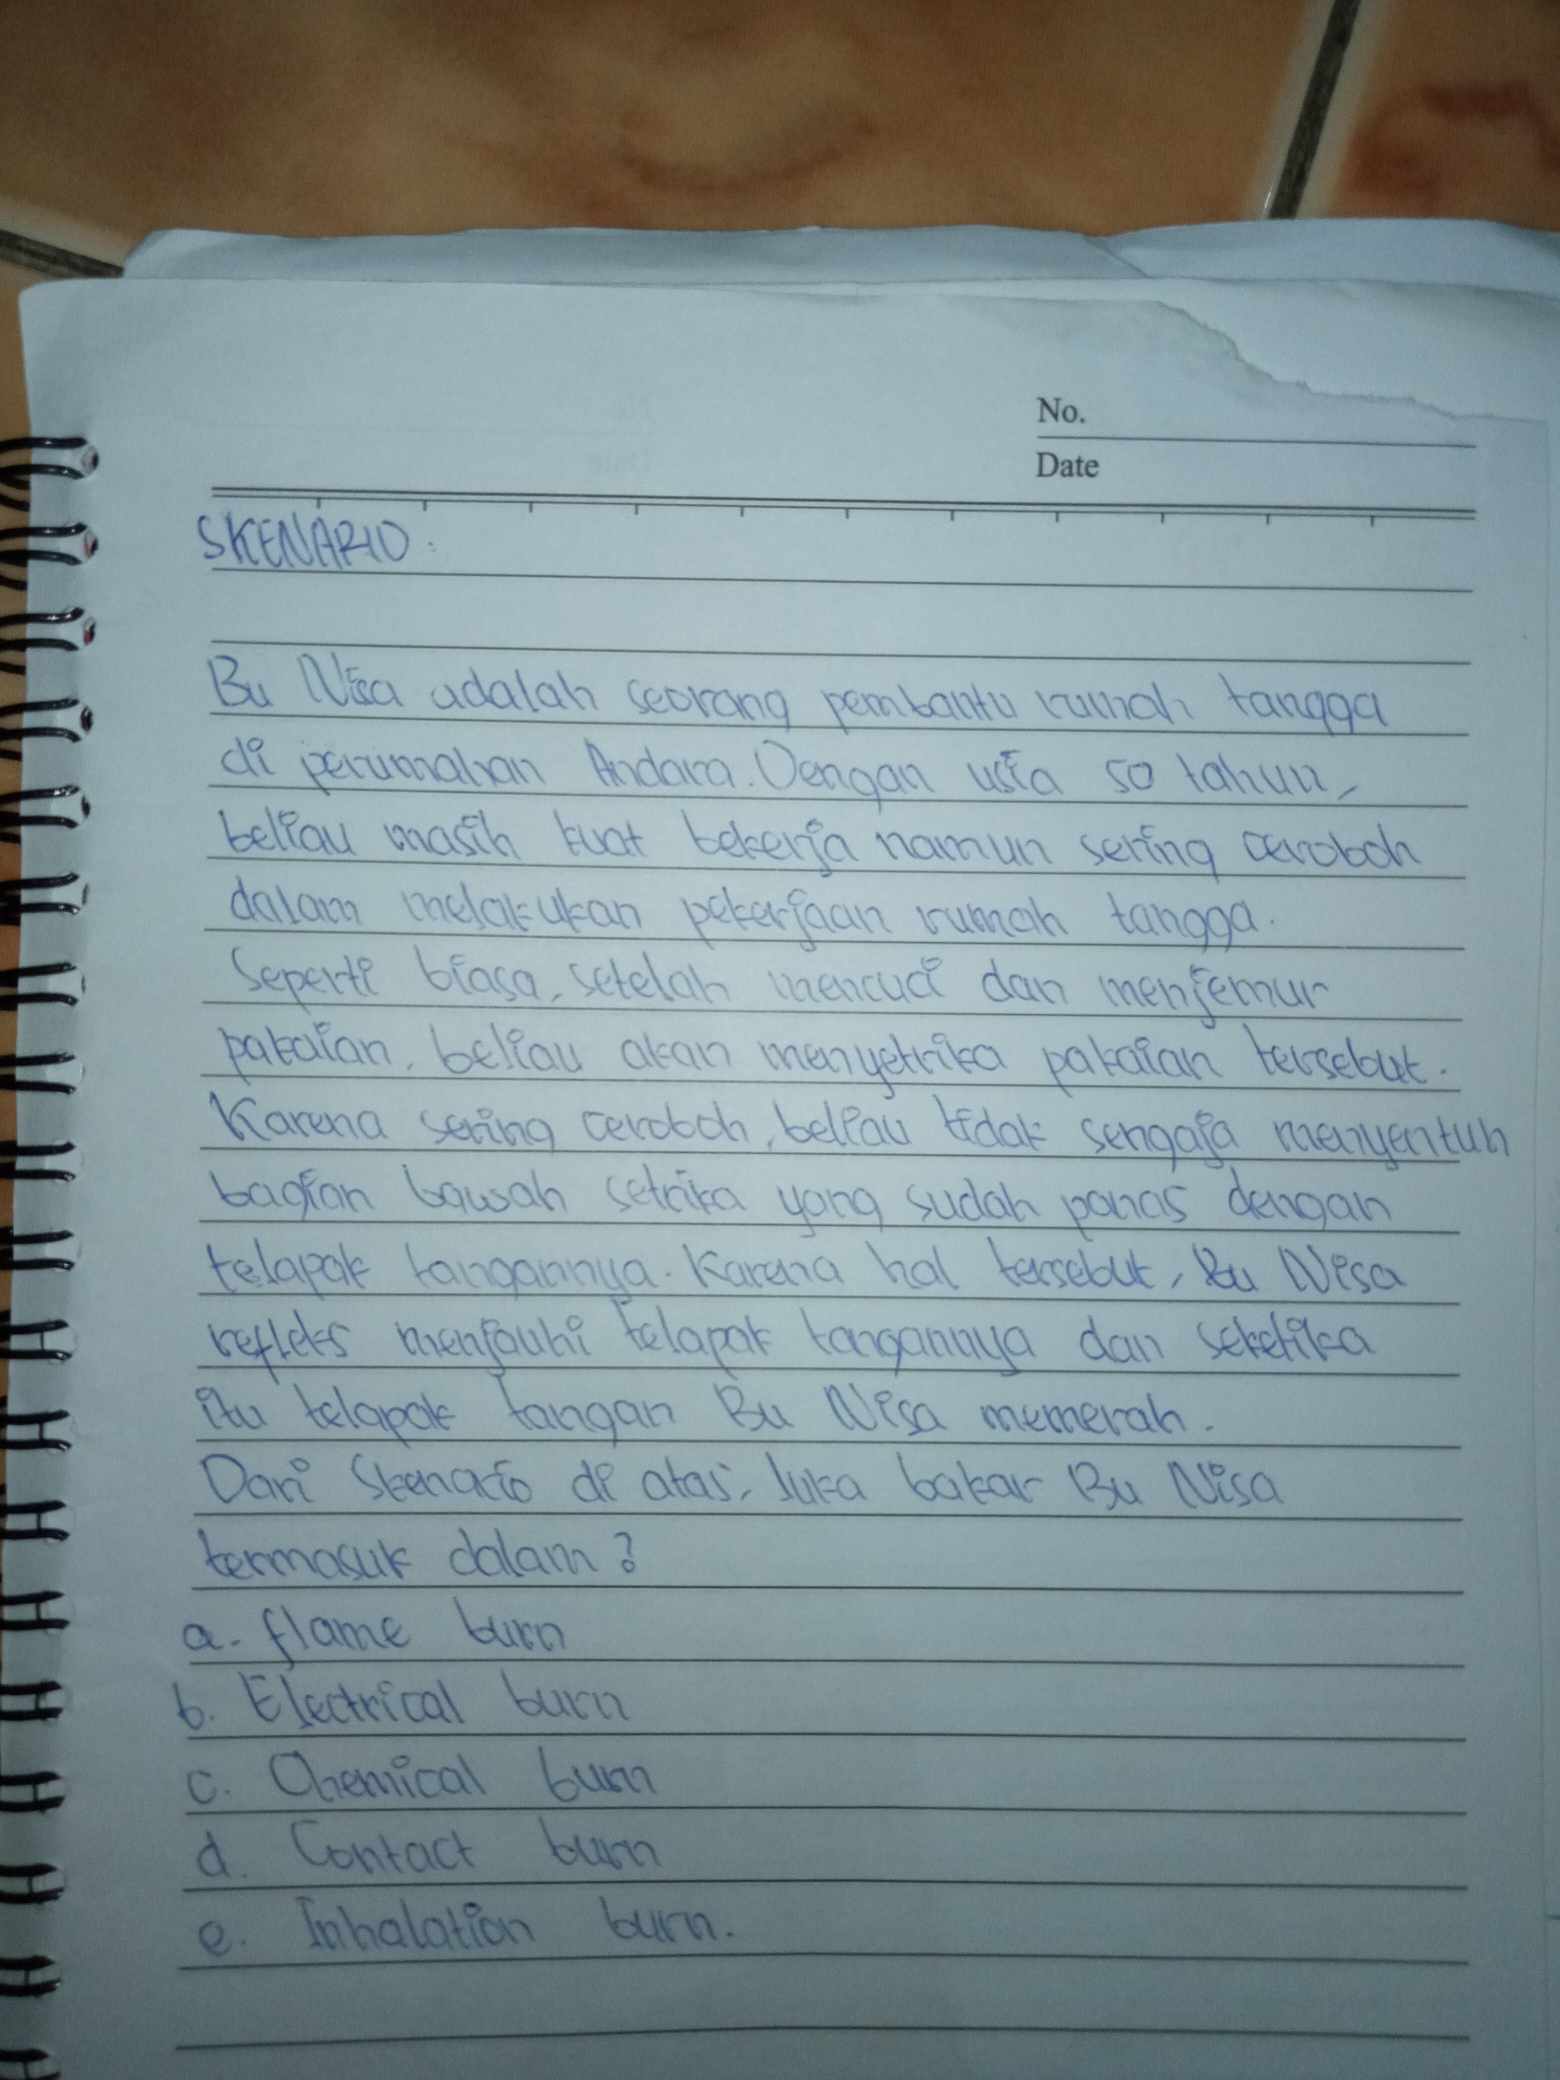 No.
Date
SKENARIO :
Bu Nisa adalah seorang pembantu rumah tangga
di perumahan Andara. Dengan usia 50 tahun,
beliau masih kuat bekerja namun sering ceroboh
dalam melakukan pekerjaan rumah tangga.
Seperti biasa, setelah mencuci dan menjemur
pakaian, beliau akan menyetrika pakaian tersebut.
Karena sering ceroboh, beliau tidak sengaja menyentuh
bagian bawah setrika yang sudah panas dengan
telapak tangannya. Karena hal tersebut, Bu Nisa
refleks menjauhi telapak tangannya dan seketika
itu telapak tangan Bu Nisa memerah.
Dari Skenario di atas, luka bakar Bu Nisa
termasuk dalam ?
a. flame burn
b. Electrical burn
c. Chemical burn
d. Contact burn
e. Inhalation burn.